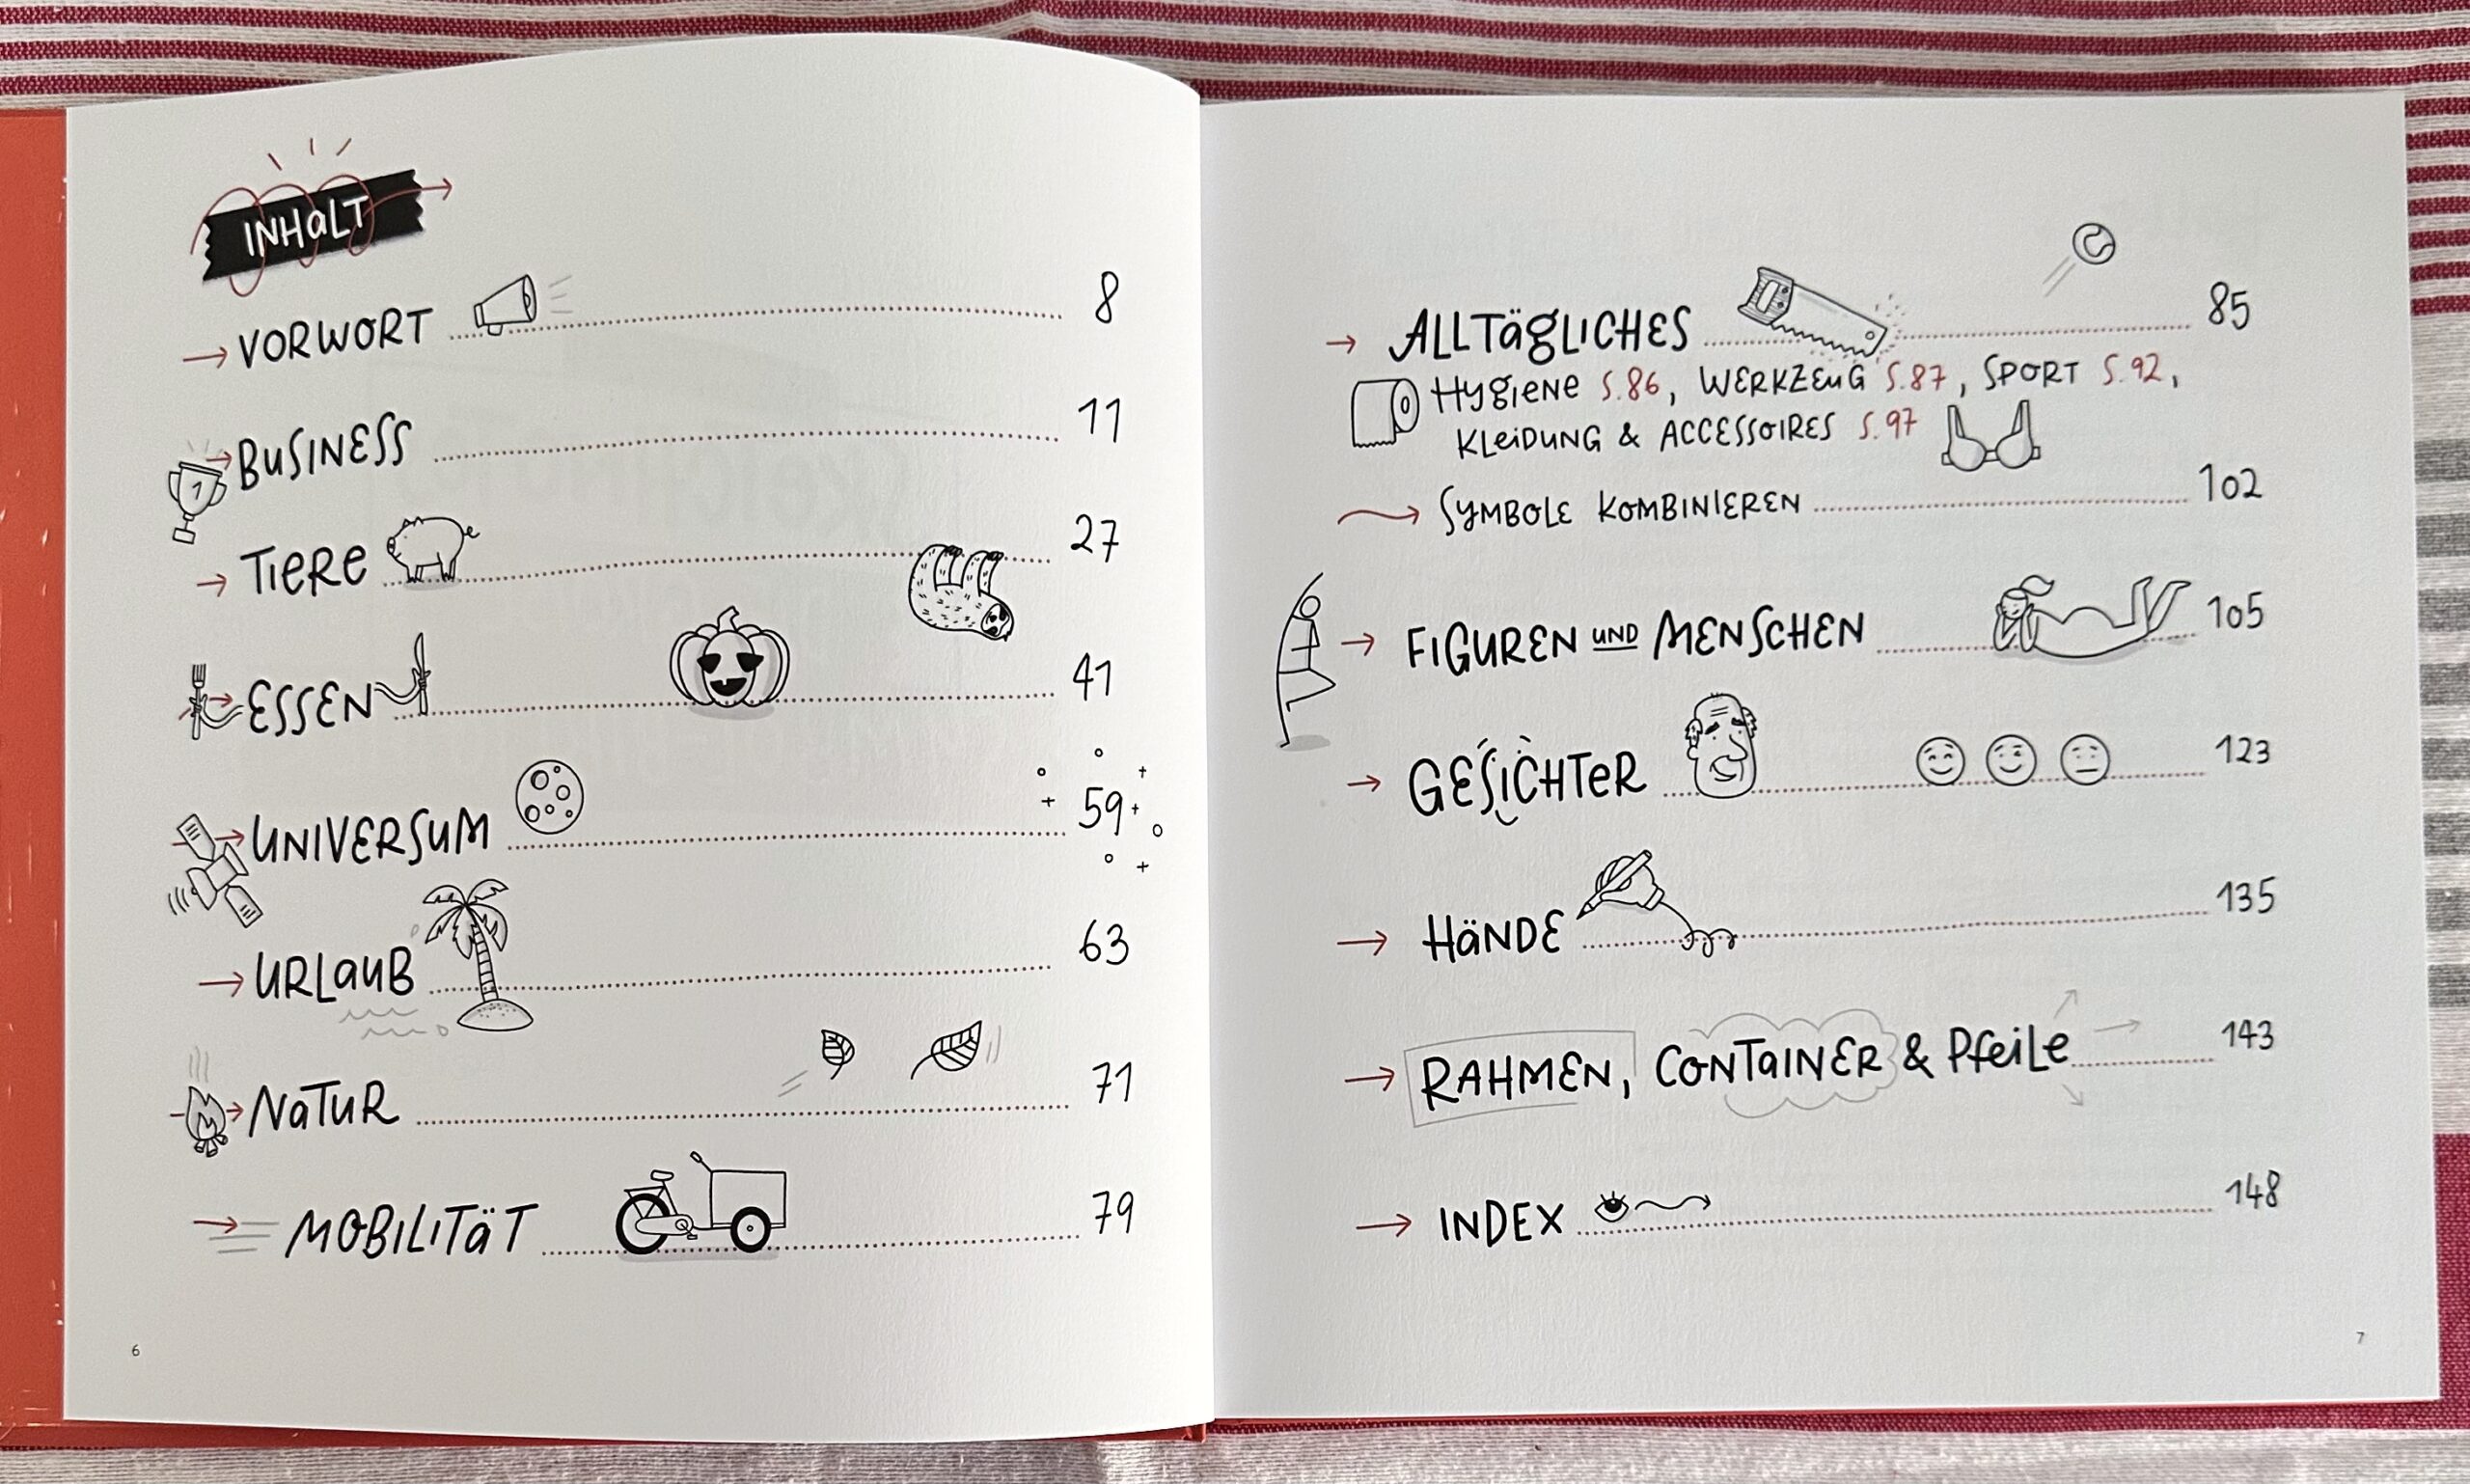 INHALT
VORWORT 8
BUSINESS 11
1
TIERE 27
ESSEN 41
UNIVERSUM 59
URLAUB 63
NATUR 71
MOBILITÄT 79
6
ALLTÄGLICHES 85
HYGIENE S.86, WERKZEUG S.87, SPORT S.92,
KLEIDUNG & ACCESSOIRES S.97
SYMBOLE KOMBINIEREN 102
FIGUREN UND MENSCHEN 105
GESICHTER 123
HÄNDE 135
RAHMEN, CONTAINER & Pfeile 143
INDEX 148
7